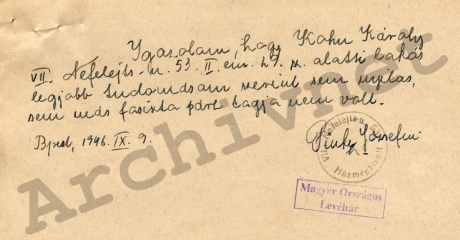 Igazolom, hogy Kohn Károly
VII. Nefelejts-u. 53. II. em. 27. sz. alatti lakós
legjobb tudomásom szerint sem nyilas,
sem más fasiszta párt tagja nem volt.
Bpest, 1946. IX. 9.
Józsefné
Házmegbízott
Magyar Országos
Levéltár
Archivnet